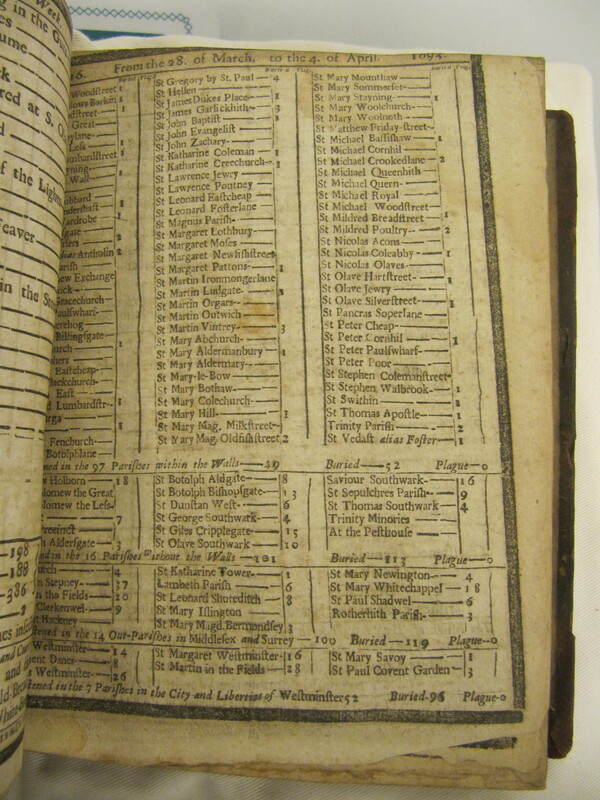 Week.
ng in the
ume
red at S.
of the
eaver
in the
198
188
386
16. From the 28. of March, to the 4. of April.
Buried Plag.
Woodstreet 1
Great
Wall
Wardrobe 1
New Exchange
Gracechurch
Billingsgate
Eastcheap
East
Lumbardstr- 1
Fenchurch
Botolphlane
St Gregory by St. Paul 4
St Hellen
St James Dukes Place 1
St James Garlickhith 3
St John Baptist 1
St John Evangelist
St John Zachary
St Katharine Coleman 1
St Katharine Creechurch 1
St Lawrence Jewry
St Lawrence Poutney
St Leonard Eastcheap
St Leonard Fosterlane
St Magnus Parish
St Margaret Lothbury
St Margaret Moses
St Margaret Newfishstreet
St Margaret Pattons 1
St Martin Ironmongerlane
St Martin Ludgate
St Martin Orgars
St Martin Outwich
St Martin Vintrey 3
St Mary Abchurch
St Mary Aldermanbury 1
St Mary Aldermary
St Mary-le-Bow
St Mary Bothaw
St Mary Colechurch
St Mary Hill
St Mary Mag. Milkstreet
St Mary Mag. Oldfishstreet 2
St Mary Mounthaw
St Mary Sommerset
St Mary Stayning 1
St Mary Woolchurch
St Mary Woolnoth
St Matthew Friday-street
St Michael Bassishaw 1
St Michael Cornhil
St Michael Crookedlane 2
St Michael Queenhith
St Michael Quern
St Michael Royal
St Michael Woodstreet
St Mildred Breadstreet 1
St Mildred Poultry 2
St Nicolas Acons
St Nicolas Coleabby 1
St Nicolas Olaves
St Olave Hartstreet 1
St Olave Jewry
St Olave Silverstreet 1
St Pancras Soperlane
St Peter Cheap
St Peter Cornhil 1
St Peter Paulswharf
St Peter Poor
St Stephen Colemanstreet
St Stephen Walbrook 1
St Swithin 2
St Thomas Apostle 1
Trinity Parish 2
St Vedast alias Foster 1
ned in the 97 Parishes within the Walls 49 Buried 52 Plague 0
Holborn 18
olomew the Great
olomew the Less
7
Precinct
Aldersgate 3
St Botolph Aldgate 8
St Botolph Bishopsgate 13
St Dunstan West 6
St George Southwark 4
St Giles Cripplegate 15
St Olave Southwark 10
Saviour Southwark 16
St Sepulchres Parish 9
St Thomas Southwark 4
Trinity Minories
At the Pesthouse
ed in the 16 Parishes without the Walls 101 Buried 113 Plague 0
urch 4
Stepney 37
n the Fields 20
Clerkenwel 9
Hackney
St Katharine Tower 1
Lambeth Parish 6
St Leonard Shoreditch 8
St Mary Islington
St Mary Magd. Bermondsey 3
St Mary Newington 4
St Mary Whitechappel 18
St Paul Shadwel 6
Rotherhith Parish 3
stened in the 14 Out-Parishes in Middlesex and Surrey 100 Buried 119 Plague 0
Westminster 14
ment Danes 8
s Westminster 26
St Margaret Westminster 16
St Martin in the Fields 28
St Mary Savoy 1
St Paul Covent Garden 3
stened in the 7 Parishes in the City and Liberties of Westminster 52 Buried 96 Plague 0